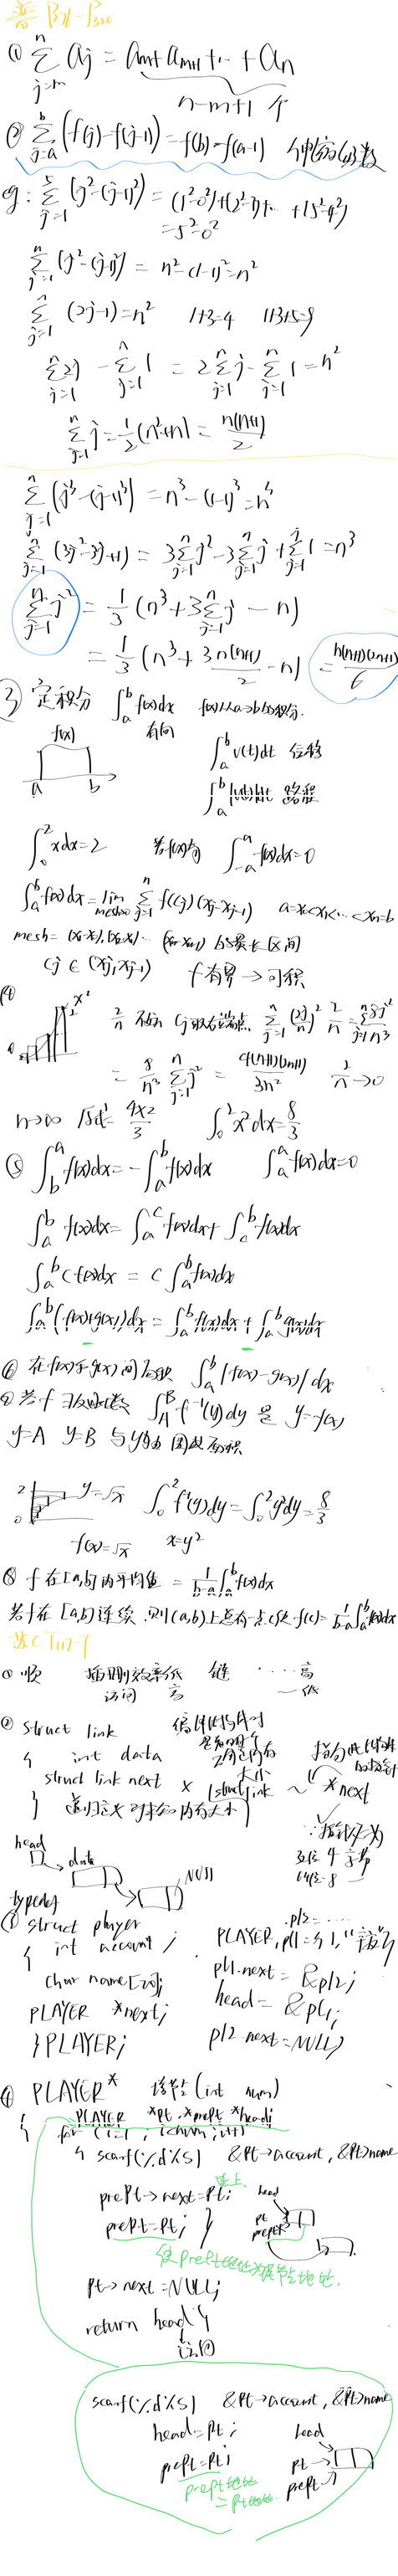 普 P321-P320
① \sum_{j=m}^{n} aj = am+am+1+··+an
n-m+1 个
② \sum_{j=a}^{b} (f(j)-f(j-1)) = f(b)-f(a-1)
eg: \sum_{j=1}^{5} (j²-(j-1)²) = (1²-0²)+(2²-1²)+··+(5²-4²)
=5²-0²
\sum_{j=1}^{n} (j²-(j-1)²) = n²-(1-1)²=n²
\sum_{j=1}^{n} (2j-1)=n² 1+3=4 1+3+5=9
\sum_{j=1}^{n} 2j - \sum_{j=1}^{n} 1 = 2\sum_{j=1}^{n} j - \sum_{j=1}^{n} 1 = n²
\sum_{j=1}^{n} j = \frac{1}{2}(n²+n) = \frac{n(n+1)}{2}
\sum_{j=1}^{n} (j³-(j-1)³) = n³-(1-1)³=n³
\sum_{j=1}^{n} (3j²-3j+1) = 3\sum_{j=1}^{n} j²-3\sum_{j=1}^{n} j+\sum_{j=1}^{n} 1=n³
\sum_{j=1}^{n} j² = \frac{1}{3}(n³+3\sum_{j=1}^{n} j - n)
= \frac{1}{3}(n³+\frac{3n(n+1)}{2}-n) = \frac{n(n+1)(2n+1)}{6}
③ 定积分 \int_a^b f(x)dx f(x)从a→b的积分.
有向
f(x)
a b
\int_a^b v(t)dt 位移
\int_a^b |v(t)|dt 路程
\int_0^2 xdx=2 若f(x)为奇 \int_{-a}^a f(x)dx=0
\int_a^b f(x)dx=lim_{mesh→0} \sum_{j=1}^{n} f(cj)(xj-xj-1) a=x0<x1<··<xn=b
mesh= (x1-x0),(x2-x1)··(xn-xn-1) 的最长区间
cj ∈ (xj-1,xj) f有界→可积
④ x²
\frac{2}{n} cj取右端点, \sum_{j=1}^{n} (\frac{2j}{n})² \frac{2}{n} = \sum_{j=1}^{n} \frac{8j²}{n³}
= \frac{8}{n³} \sum_{j=1}^{n} j² = \frac{4(n+1)(2n+1)}{3n²} \frac{2}{n}→0
n→∞ 原式=\frac{4×2}{3} \int_0^2 x²dx=\frac{8}{3}
⑤ \int_b^a f(x)dx=-\int_a^b f(x)dx \int_a^a f(x)dx=0
\int_a^b f(x)dx=\int_a^c f(x)dx+\int_c^b f(x)dx
\int_a^b Cf(x)dx = C\int_a^b f(x)dx
\int_a^b (f(x)+g(x))dx = \int_a^b f(x)dx+\int_a^b g(x)dx
⑥ 在f(x)与g(x)间面积 \int_a^b |f(x)-g(x)|dx
⑦ 若f 反函数 \int_A^B f⁻¹(y)dy 是 y=f(x)
y=A y=B 与y轴 围成面积
2 y=√x \int_0^2 f⁻¹(y)dy=\int_0^2 y²dy=\frac{8}{3}
0
f(x)=√x x=y²
⑧ f在[a,b]内平均值 = \frac{1}{b-a}\int_a^b f(x)dx
若f在[a,b]连续,则(a,b)上总有一点c使f(c)=\frac{1}{b-a}\int_a^b f(x)dx
① 顺 插删效率低 链 ···· 高
访问 高 — 低
② struct link
{ int data
struct link next × (struct link ~ *next
} 递归定义
head
data
NULL
typedef
① struct player
{ int account;
char name[20];
PLAYER *next;
} PLAYER;
.pl2=···
pl1.next=&pl2;
head=&pl1;
pl2.next=NULL;
④ PLAYER* (int num)
{ PLAYER *pt,*prept,*head;
{ scanf(%d%s) &pt→account,&pt→name
连上.
prept→next=pt;
prept=pt; }
head
pt
prept
使prept地址
pt→next=NULL;
return head }
scanf(%d%s) &pt→account,&pt→name
head=pt;
prept=pt;
prept地址
=pt地址
head
pt→
prept